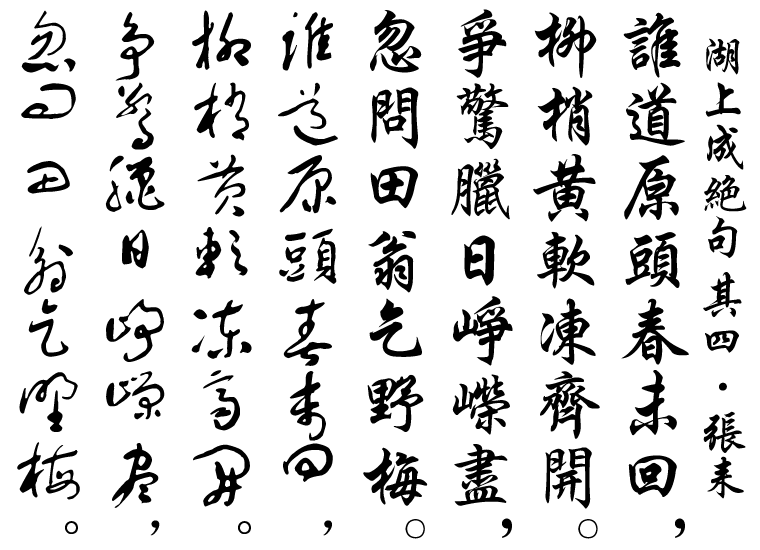 湖上成絕句 其四 · 張耒
誰道原頭春未回，
柳梢黃軟凍齊開。
爭驚臘日崢嶸盡，
忽問田翁乞野梅。
誰道原頭春未回，
柳梢黃軟凍齊開。
爭驚臘日崢嶸盡，
忽問田翁乞野梅。